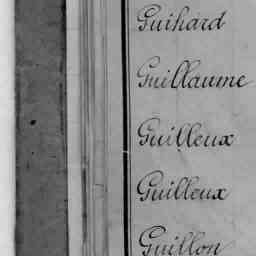 Guihard
Guillaume
Guilleux
Guilleux
Guillon